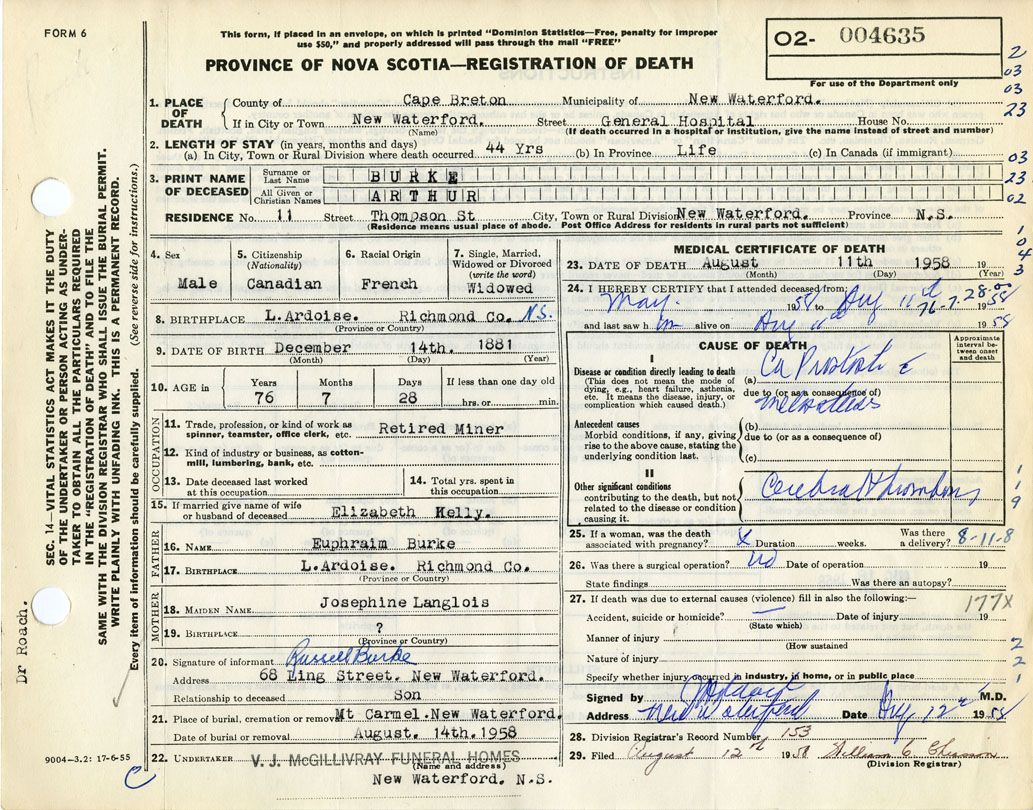 FORM 6
This form, if placed in an envelope, on which is printed "Dominion Statistics—Free, penalty for improper
use $50," and properly addressed will pass through the mail "FREE"
PROVINCE OF NOVA SCOTIA—REGISTRATION OF DEATH
O2- 004635
For use of the Department only
2
03
03
23
03
23
02
1
0
4
3
1. PLACE OF DEATH
County of Cape Breton Municipality of New Waterford.
If in City or Town New Waterford. Street General Hospital House No.
(Name) (If death occurred in a hospital or institution, give the name instead of street and number)
2. LENGTH OF STAY (in years, months and days)
(a) In City, Town or Rural Division where death occurred 44 Yrs (b) In Province Life (c) In Canada (if immigrant)
3. PRINT NAME OF DECEASED
Surname or Last Name BURKE
All Given or Christian Names ARTHUR
RESIDENCE No. 11 Street Thompson St City, Town or Rural Division New Waterford. Province N.S.
(Residence means usual place of abode. Post Office Address for residents in rural parts not sufficient)
4. Sex
Male
5. Citizenship
(Nationality)
Canadian
6. Racial Origin
French
7. Single, Married,
Widowed or Divorced
(write the word)
Widowed
8. BIRTHPLACE L.Ardoise. Richmond Co. N.S.
(Province or Country)
9. DATE OF BIRTH December 14th. 1881
(Month) (Day) (Year)
10. AGE in
Years Months Days If less than one day old
76 7 28 hrs. or min.
OCCUPATION
11. Trade, profession, or kind of work as
spinner, teamster, office clerk, etc. Retired Miner
12. Kind of industry or business, as cotton-
mill, lumbering, bank, etc.
13. Date deceased last worked
at this occupation
14. Total yrs. spent in
this occupation
15. If married give name of wife
or husband of deceased Elizabeth Kelly.
FATHER
16. NAME Euphraim Burke
17. BIRTHPLACE L.Ardoise. Richmond Co.
(Province or Country)
MOTHER
18. MAIDEN NAME Josephine Langlois
19. BIRTHPLACE ?
(Province or Country)
20. Signature of informant Russell Burke
Address 68 Ling Street. New Waterford.
Relationship to deceased Son
21. Place of burial, cremation or removal Mt Carmel.New Waterford.
Date of burial or removal August. 14th.1958
22. UNDERTAKER V. J. McGILLIVRAY FUNERAL HOMES
(Name and address)
New Waterford. N.S.
MEDICAL CERTIFICATE OF DEATH
23. DATE OF DEATH August 11th 1958 19
(Month) (Day) (Year)
24. I HEREBY CERTIFY that I attended deceased from:
May. 1958 to Aug 11th 1958
76-7-28
and last saw him alive on Aug 11th 1958
CAUSE OF DEATH
Approximate
interval be-
tween onset
and death
I
Disease or condition directly leading to death
(This does not mean the mode of
dying, e.g., heart failure, asthenia,
etc. It means the disease, injury, or
complication which caused death.)
(a) Ca Prostate
due to (or as a consequence of)
Antecedent causes
Morbid conditions, if any, giving
rise to the above cause, stating the
underlying condition last.
(b)
due to (or as a consequence of)
(c)
II
Other significant conditions
contributing to the death, but not
related to the disease or condition
causing it.
Cerebral Thrombosis
1
1
9
25. If a woman, was the death
associated with pregnancy? x Duration weeks. Was there
a delivery? 8-11-8
26. Was there a surgical operation? no Date of operation 19
State findings Was there an autopsy?
27. If death was due to external causes (violence) fill in also the following:— 177X
Accident, suicide or homicide? Date of injury 19
(State which)
Manner of injury
(How sustained
Nature of injury
Specify whether injury occurred in industry, in home, or in public place
2
2
1
Signed by M.D.
Address New Waterford Date Aug 12th 1958
28. Division Registrar's Record Number 153
29. Filed August 12th 1958
(Division Registrar)
SEC. 14—VITAL STATISTICS ACT MAKES IT THE DUTY
OF THE UNDERTAKER OR PERSON ACTING AS UNDER-
TAKER TO OBTAIN ALL THE PARTICULARS REQUIRED
IN THE "REGISTRATION OF DEATH" AND TO FILE THE
SAME WITH THE DIVISION REGISTRAR WHO SHALL ISSUE THE BURIAL PERMIT.
WRITE PLAINLY WITH UNFADING INK. THIS IS A PERMANENT RECORD.
Every item of information should be carefully supplied. (See reverse side for instructions.)
Dr Roach.
9004—3.2: 17-6-55